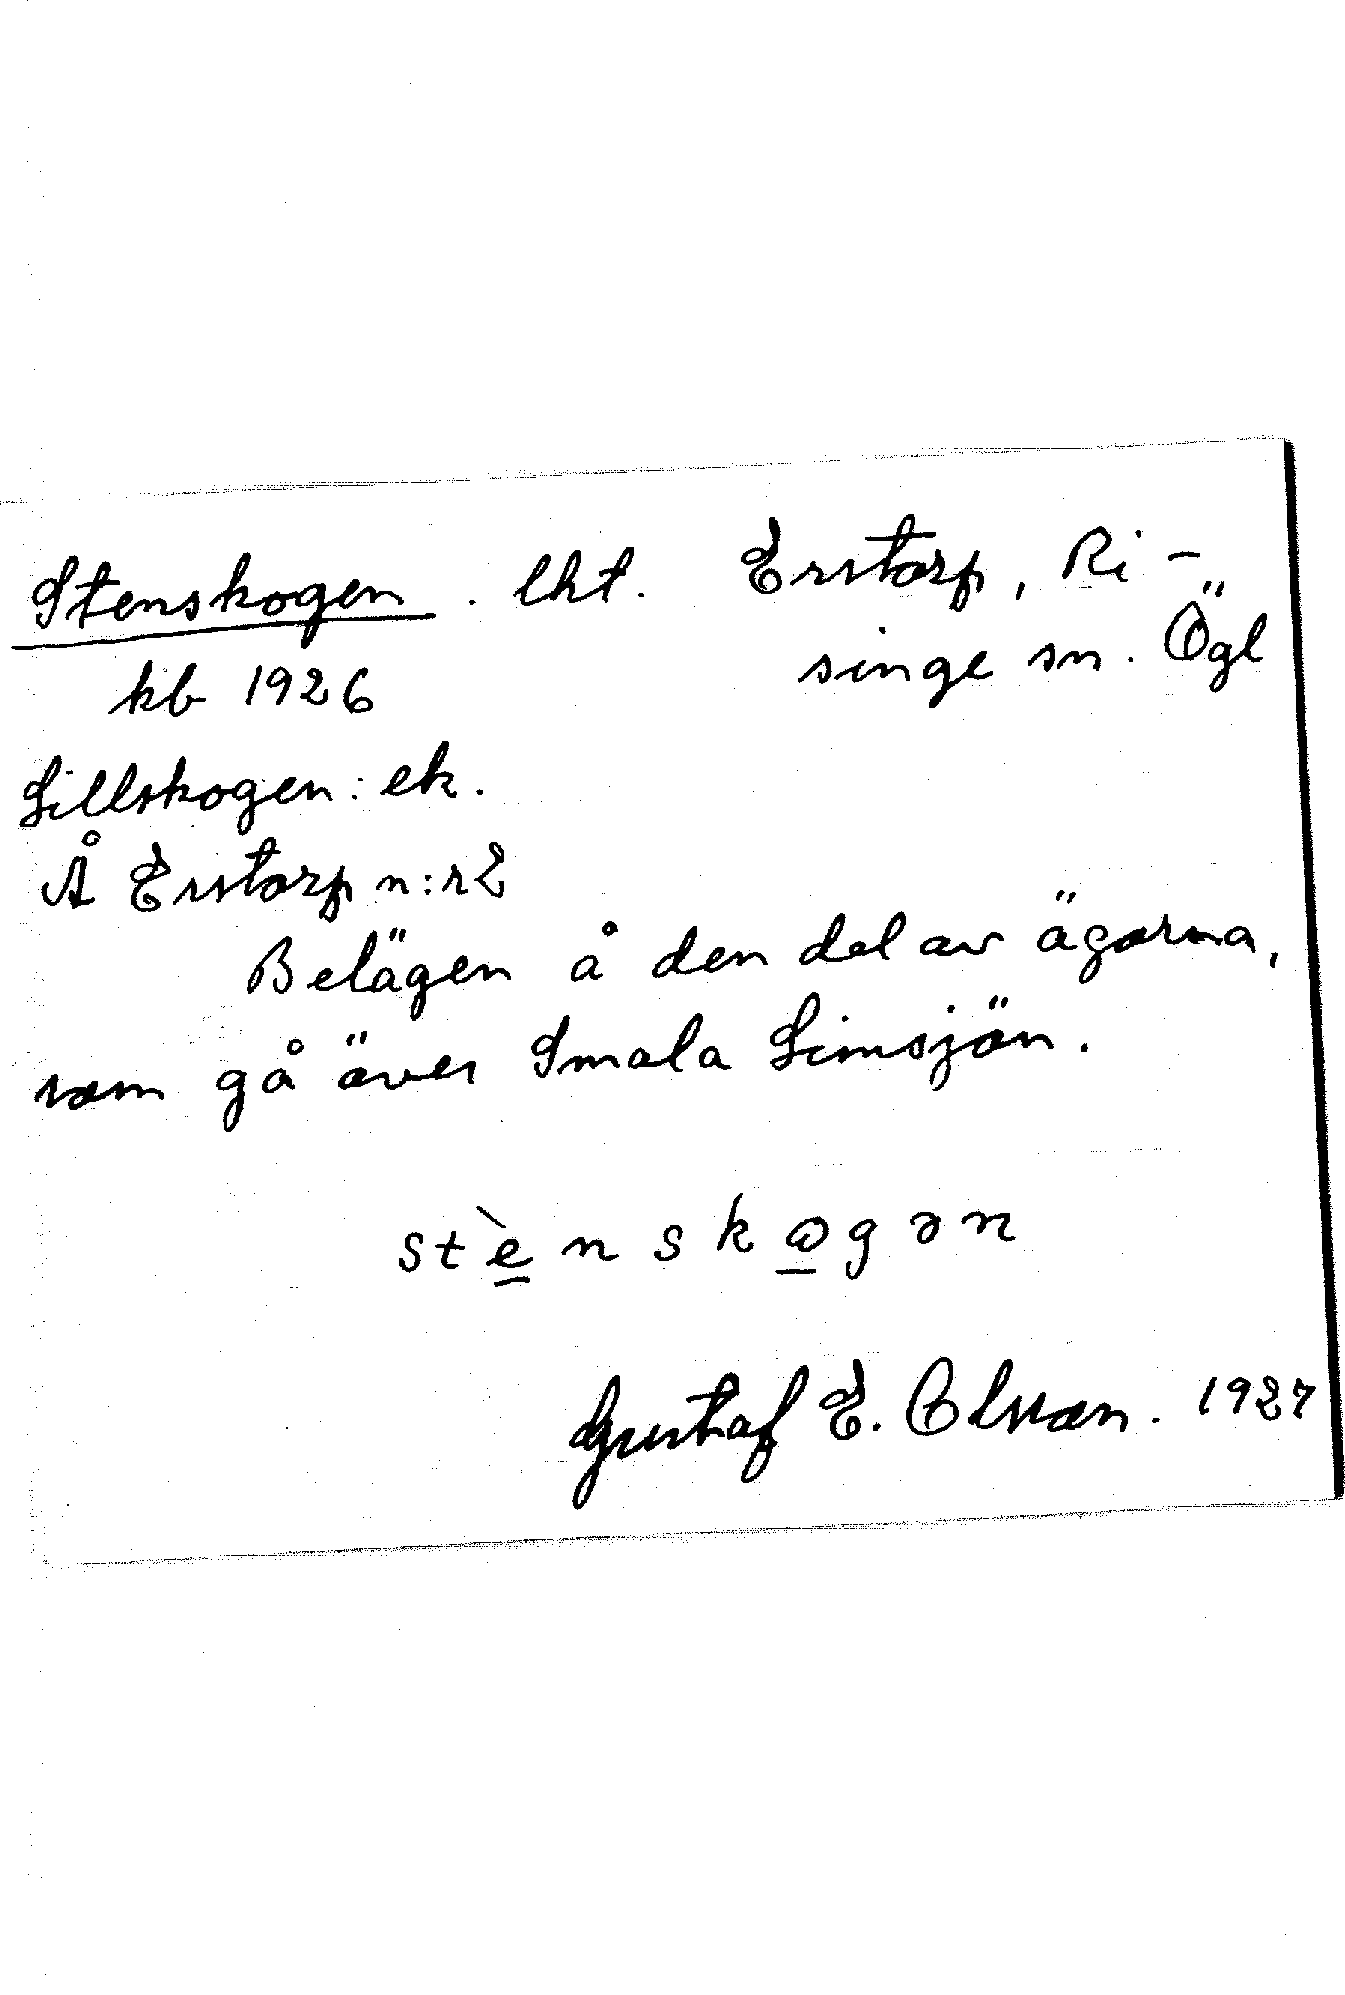 Stenskogen. lht. Erstorp, Ri-
kb 1926 singe sn. Ögl
Lillskogen: ek.
Å Erstorp n:r 2
Belägen å den del av ägorna,
som gå över Smala Limsjön.
stènskωgən
Gustaf E. Olsson. 1927